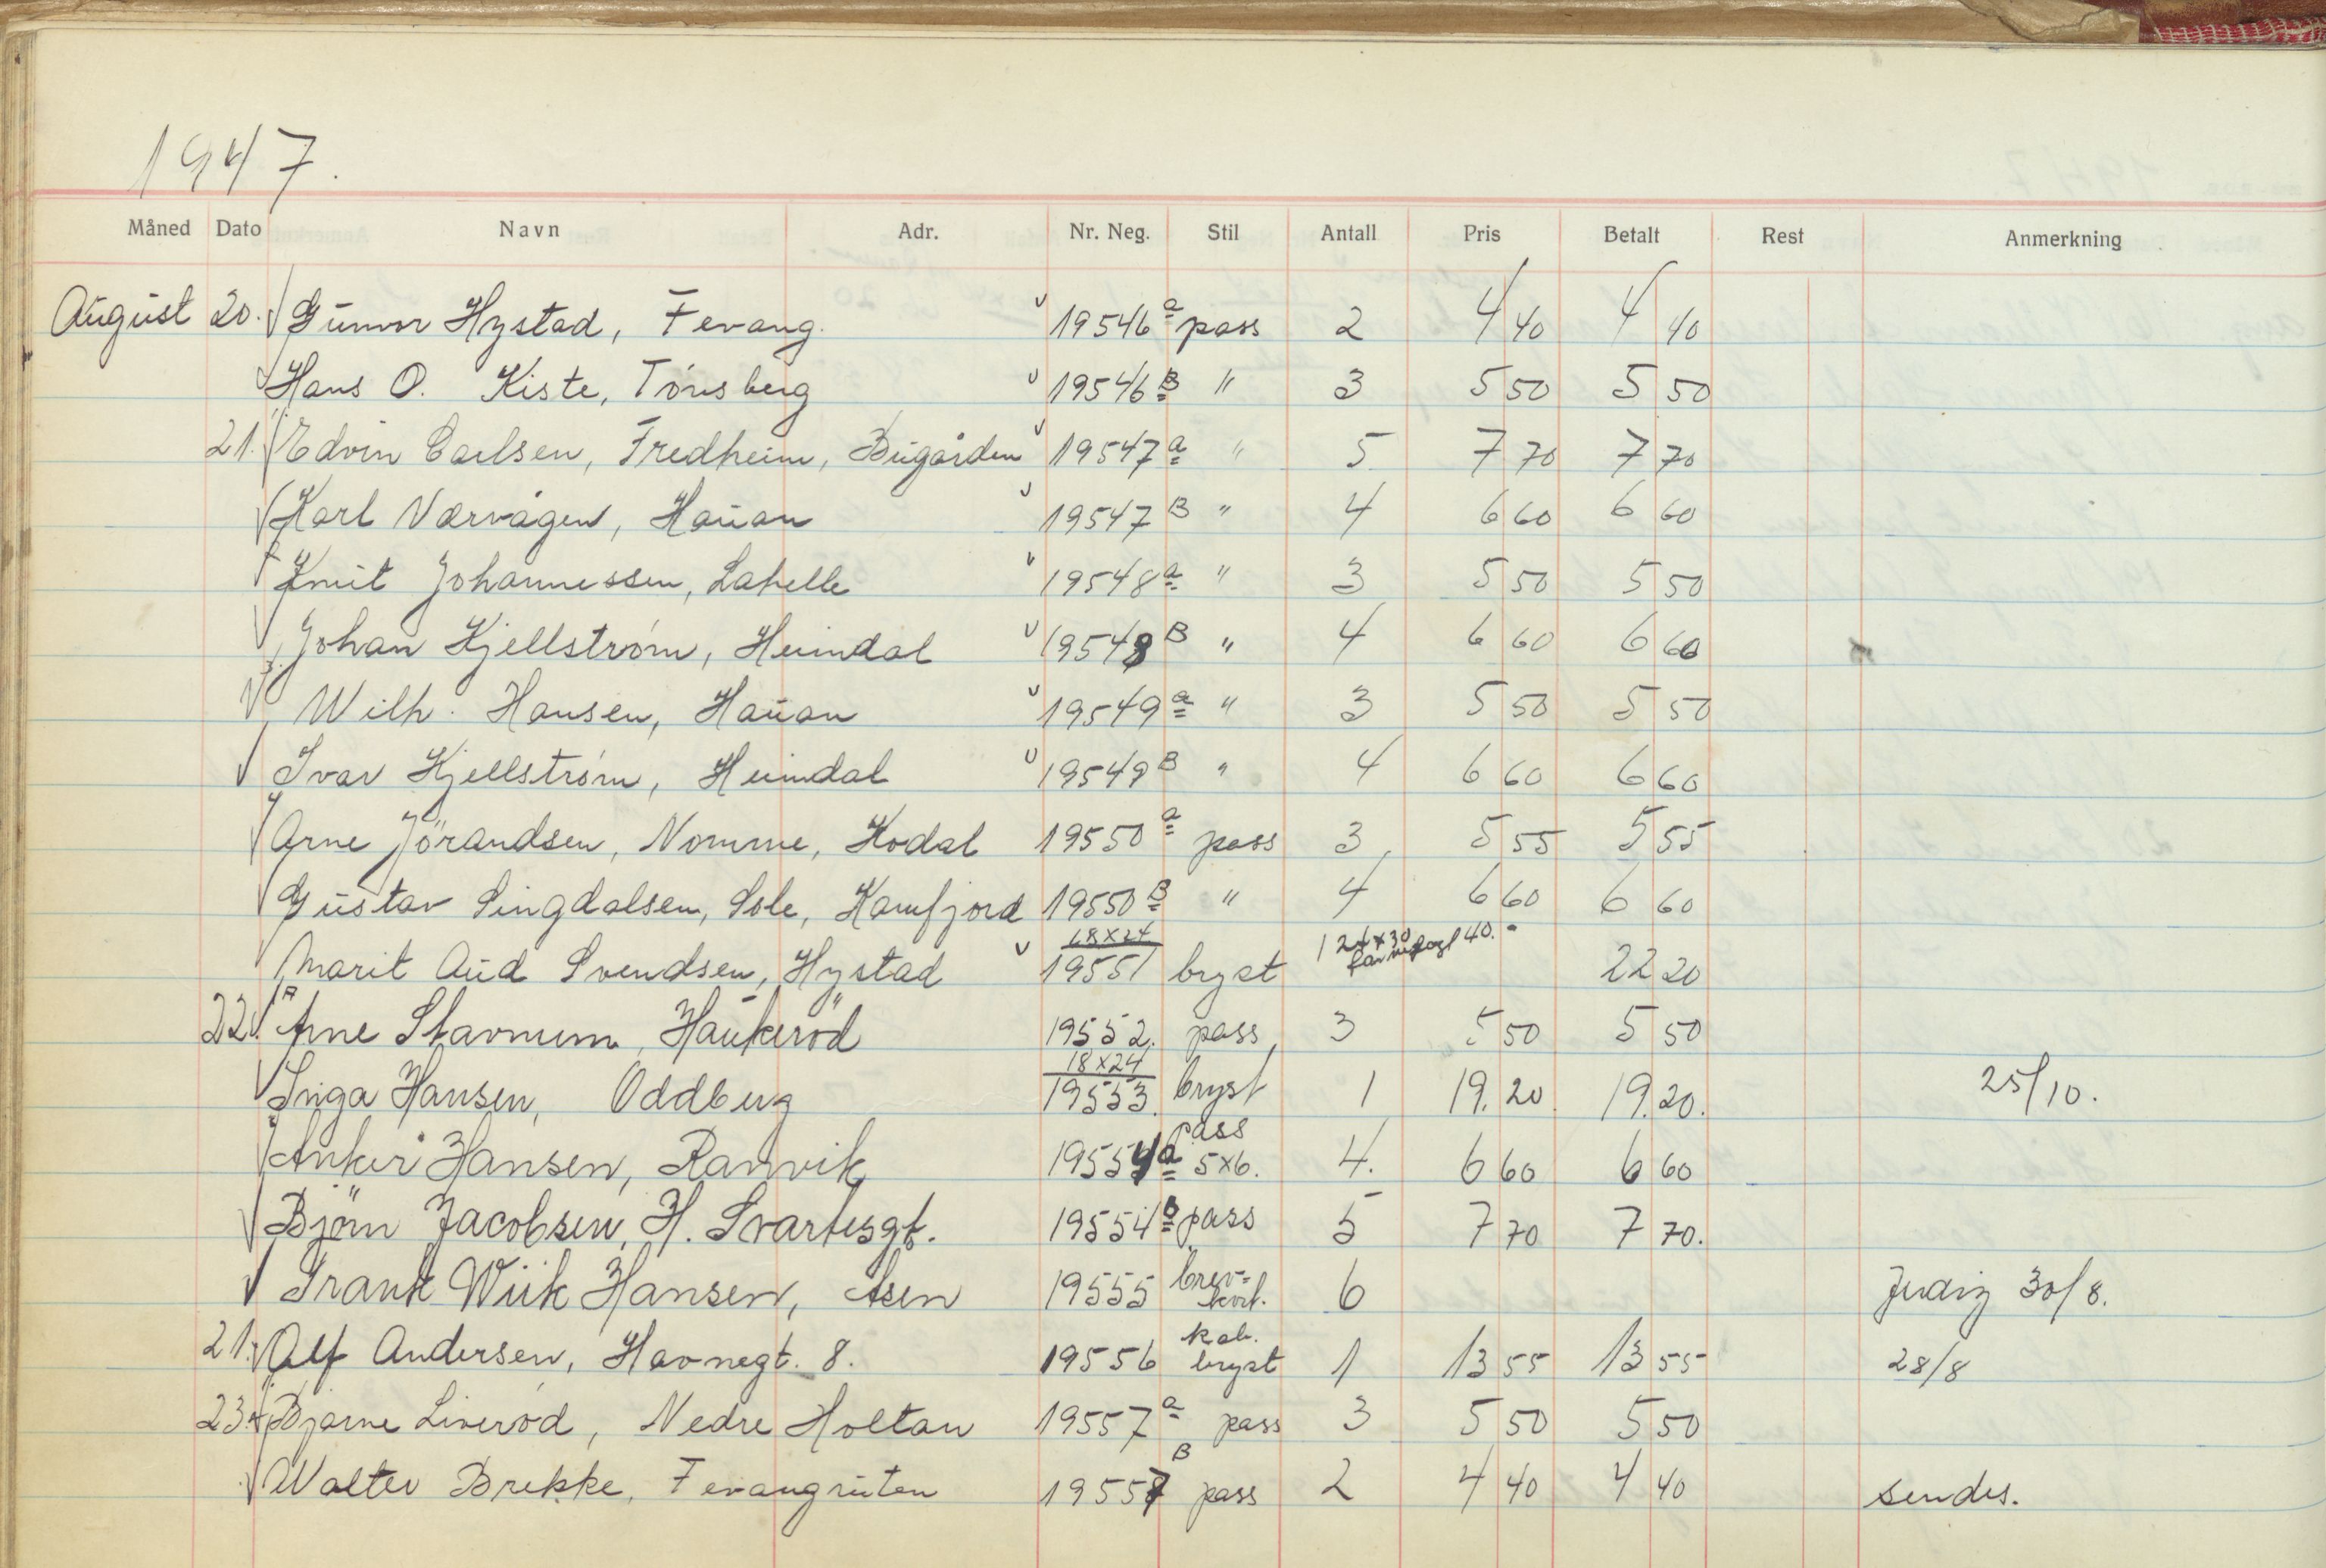 1947.
Måned Dato Navn Adr. Nr. Neg. Stil Antall Pris Betalt Rest Anmerkning
August 20. Gunvor Hystad, Fevang. 19546 a pass 2 4 40 4 40
Hans O. Kiste, Tönsberg 19546 B " 3 5 50 5 50
21. Edvin Carlsen, Fredheim, Bugården 19547 a " 5 7 70 7 70
Karl Nærvågen, Hauan 19547 B " 4 6 60 6 60
Knut Johannessen, Lahelle 19548 a " 3 5 50 5 50
Johan Kjellström, Heimdal 19548 B " 4 6 60 6 60
Wilh. Hansen, Hauan 19549 a " 3 5 50 5 50
Ivar Kjellström, Heimdal 19549 B " 4 6 60 6 60
Arne Jörandsen, Nomme, Kodal 19550 a pass 3 5 55 5 55
Gustav Lingdalsen, Sole, Kamfjord 19550 B " 4 6 60 6 60
18x24 1 24x30 40.-
Marit Aud Svendsen, Hystad 19551 bryst 22 20
22. Arne Stavnum, Haukeröd 19552. pass 3 5 50 5 50
18x24
Inga Hansen, Oddberg 19553. bryst 1 19. 20 19. 20. 25/10.
pass
Anker Hansen, Ranvik 19554 a 5x6. 4. 6 60 6 60
Björn Jacobsen, H. Svartesgt. 19554 B pass 5 7 70 7 70.
Frank Wiik Hansen, Åsen 19555 brev-kort. 6 30/8.
kab.
21. Alf Andersen, Havnegt. 8. 19556 bryst 1 13 55 13 55 28/8
23. Bjarne Liveröd, Nedre Holtan 19557 a pass 3 5 50 5 50
Walter Brekke, Fevangruten 19557 B pass 2 4 40 4 40 sendes.